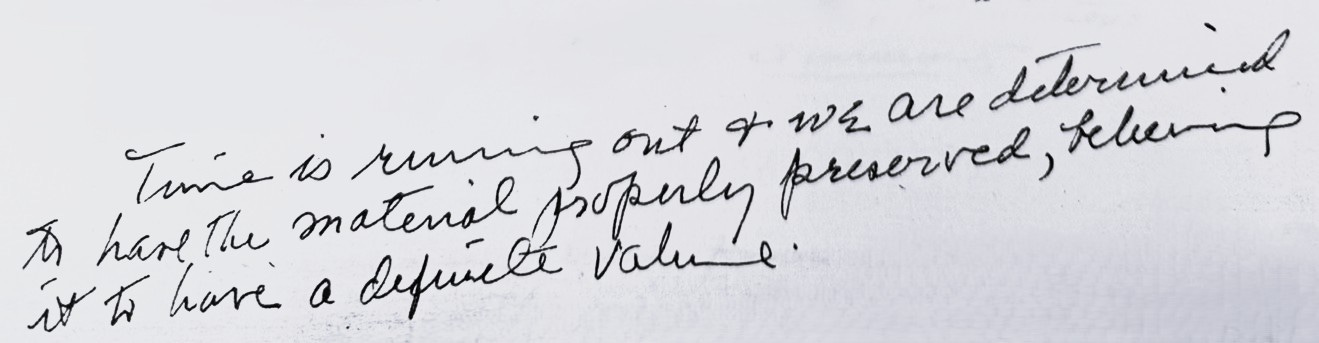 Time is running out & we are determined
to have the material properly preserved, believing
it to have a definite value.